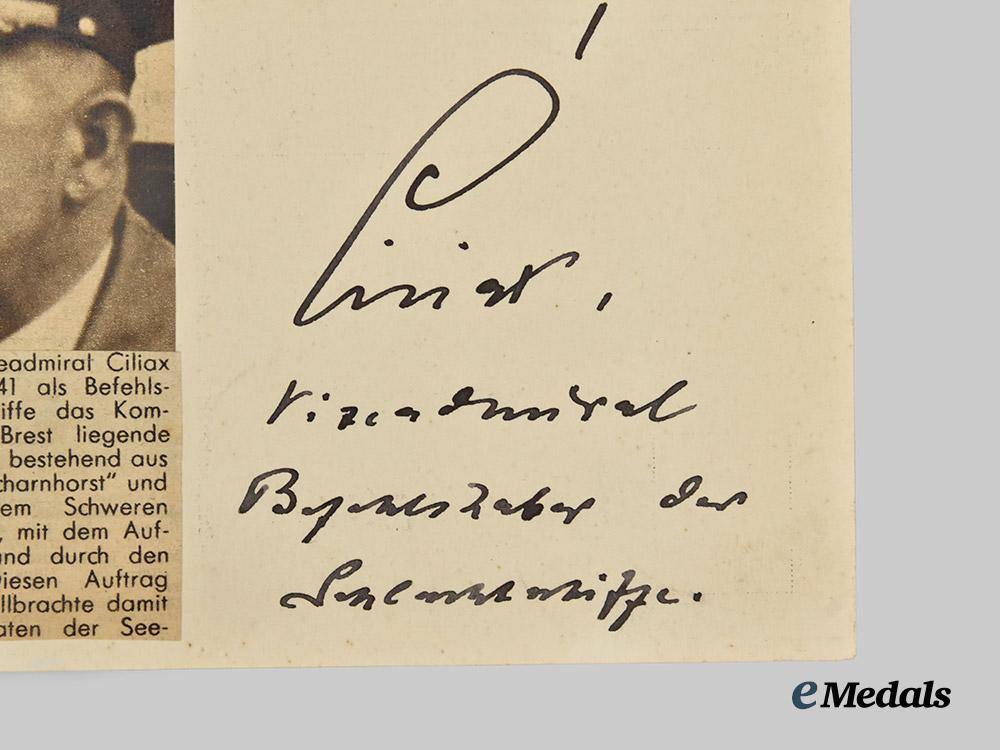 eadmiral Ciliax
41 als Befehls-
iffe das Kom-
Brest liegende
bestehend aus
charnhorst" und
em Schweren
, mit dem Auf-
und durch den
Diesen Auftrag
llbrachte damit
aten der See-
Ciliax,
Vizeadmiral
Befehlshaber der
Schlachtschiffe.
eMedals